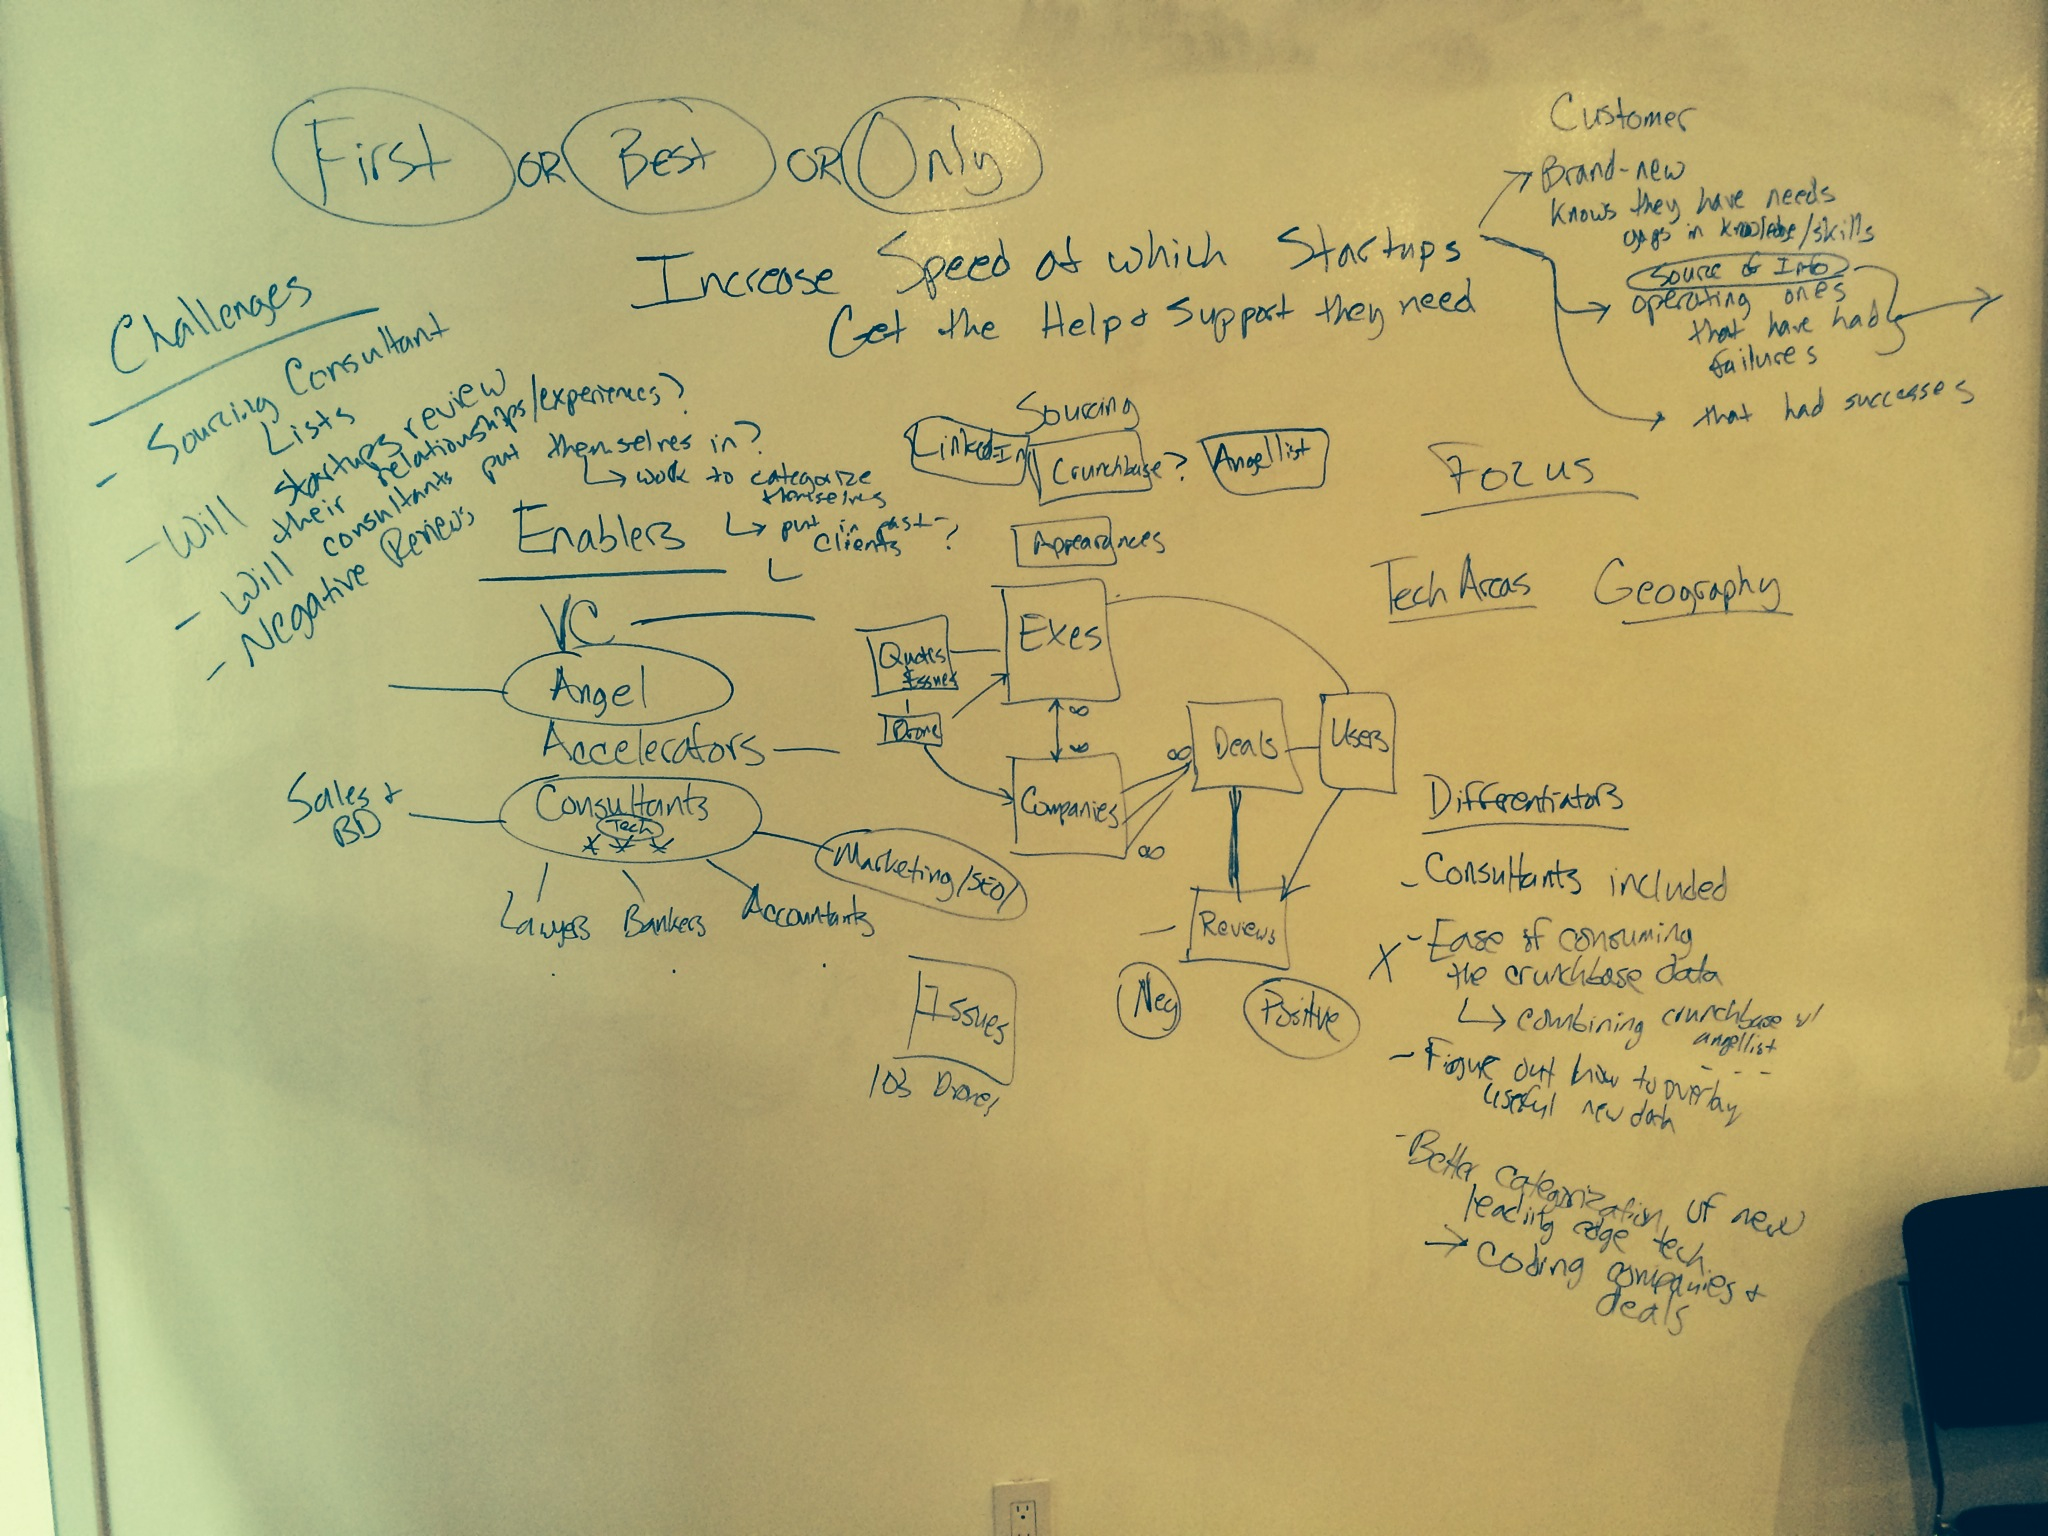 First OR Best OR Only
Increase Speed at which Startups
Get the Help & Support they need
Customer
Brand-new
knows they have needs
gaps in knowledge/skills
Source of Info
operating ones
that have had
failures
that had successes
Challenges
- Sourcing Consultant
Lists
- Will startups review
their relationships/experiences?
- Will consultants put themselves in?
↳ work to categorize
themselves
↳ put in past
clients?
- Negative Reviews
Sourcing
LinkedIn
Crunchbase?
Angellist
Appearances
Focus
Tech Areas
Geography
Enablers
VC
Angel
Accelerators
Consultants
Tech
Sales +
BD
Marketing/SEO/
Lawyers
Bankers
Accountants
Exes
Quotes
Issues
Drone
∞
∞
Companies
∞
∞
Deals
Users
Reviews
Neg
Positive
Issues
103 Drones
Differentiators
- Consultants included
X - Ease of consuming
the crunchbase data
↳ combining crunchbase w/
angellist
- Figure out how to overlay
useful new data
- Better categorization of new
leading edge tech
→ Coding companies +
deals